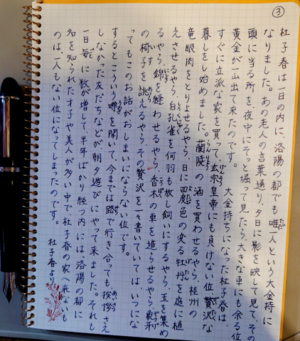 ③
杜子春は一日の内に、洛陽の都でも唯一人という大金持に
なりました。あの老人の言葉通り、夕日に影を映して見て、その
頭に当る所を、夜中にそっと掘って見たら、大きな車にも余る位
黄金が一山出て来たのです。
大金持になった杜子春は
すぐに立派な家を買って、玄宗皇帝にも負けない位、贅沢な
暮しをし始めました。蘭陵の酒を買わせるやら、桂州の
竜眼肉をとりよせるやら、日に四度色の変る牡丹を庭に植
えさせるやら、白孔雀を何羽も放し飼いにするやら、玉を集め
るやら、錦を縫わせるやら、香木の車を造らせるやら、象牙
の椅子を誂えるやら、その贅沢を一々書いていては、いつにな
ってもこの話がおしまいにならない位です。
するとこういう噂を聞いて、今までは路で行き合っても、挨拶さえ
しなかった友だちなどが、朝夕遊びにやって来ました。それも
一日毎に数が増して、半年ばかり経つ内には、洛陽の都に
名を知られた才子や美人が多い中で、杜子春の家へ来ないも
のは、一人もない位になってしまったのです。
杜子春より